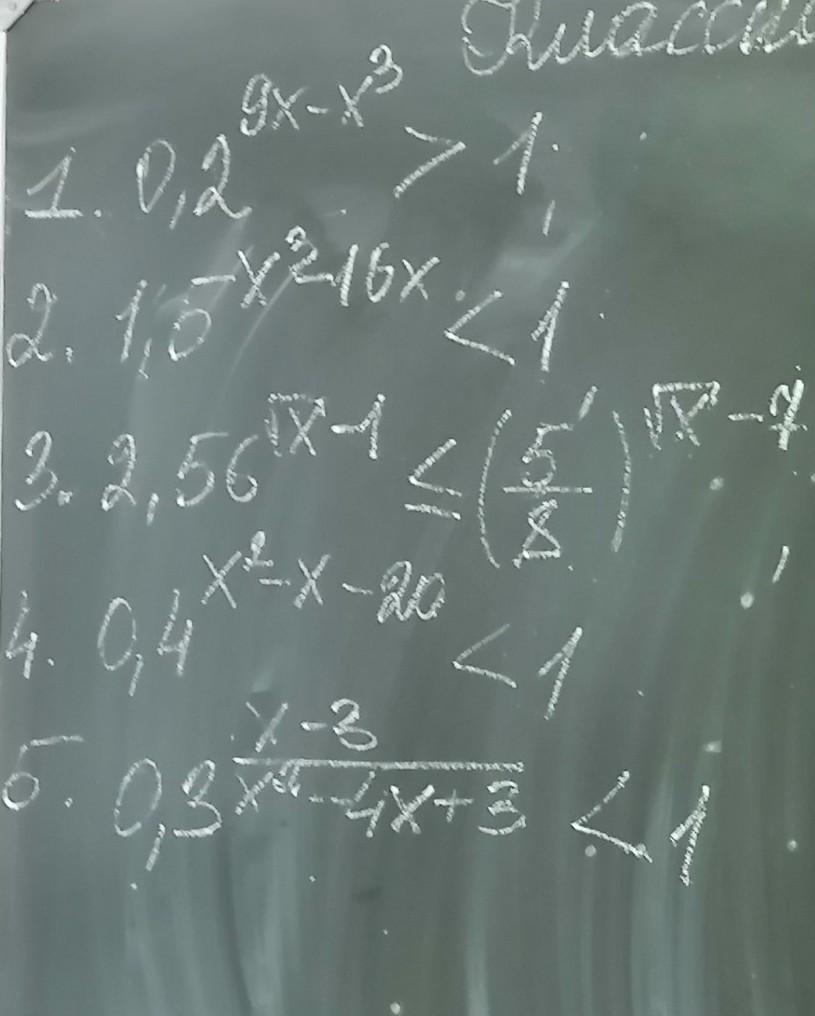 1. 0,2^{9x-x^3} > 1,
2. 1,5^{-x^3-16x} < 1
3. 2,56^{\sqrt{x}-1} ≤ (5/8)^{\sqrt{x}-7},
4. 0,4^{x^2-x-20} < 1
5. 0,3^{\frac{x-3}{x^2-4x+3}} < 1